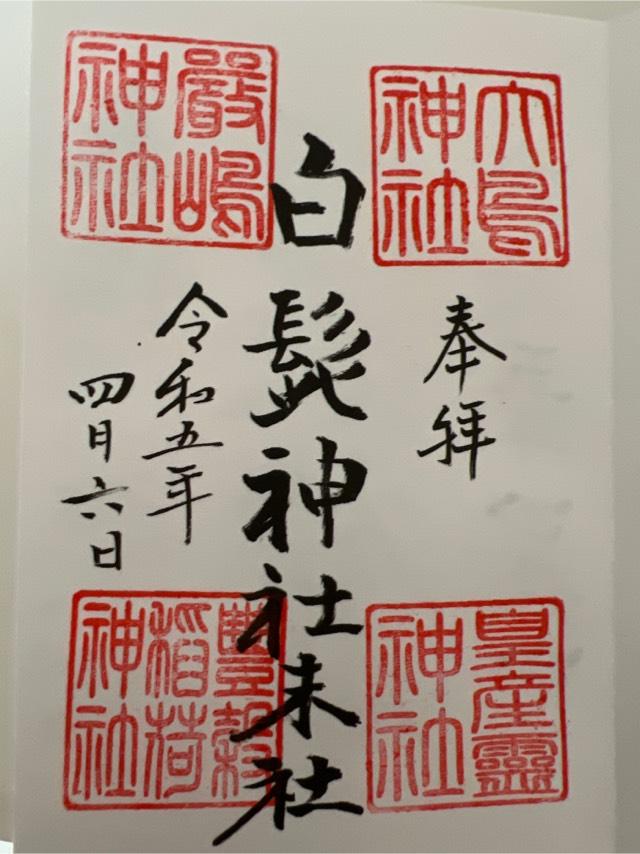 大鳥
神社
奉拝
皇産靈
神社
白髭神社末社
嚴嶋
神社
令和五年
四月六日
豐穀
稲荷
神社